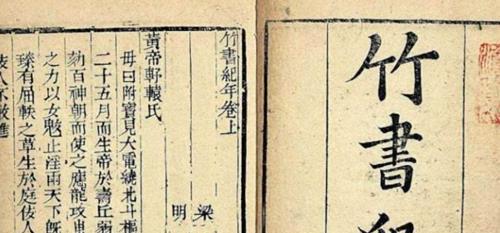 竹書紀
竹書紀年卷上
梁
明
黃帝軒轅氏
母曰附寶見大電繞北斗樞
二十五月而生帝於壽丘弱
劾百神朝而使之應龍攻蚩
之力以女魃止淫雨天下既
臻有屈軼之草生於庭佞人
佞人不敢進